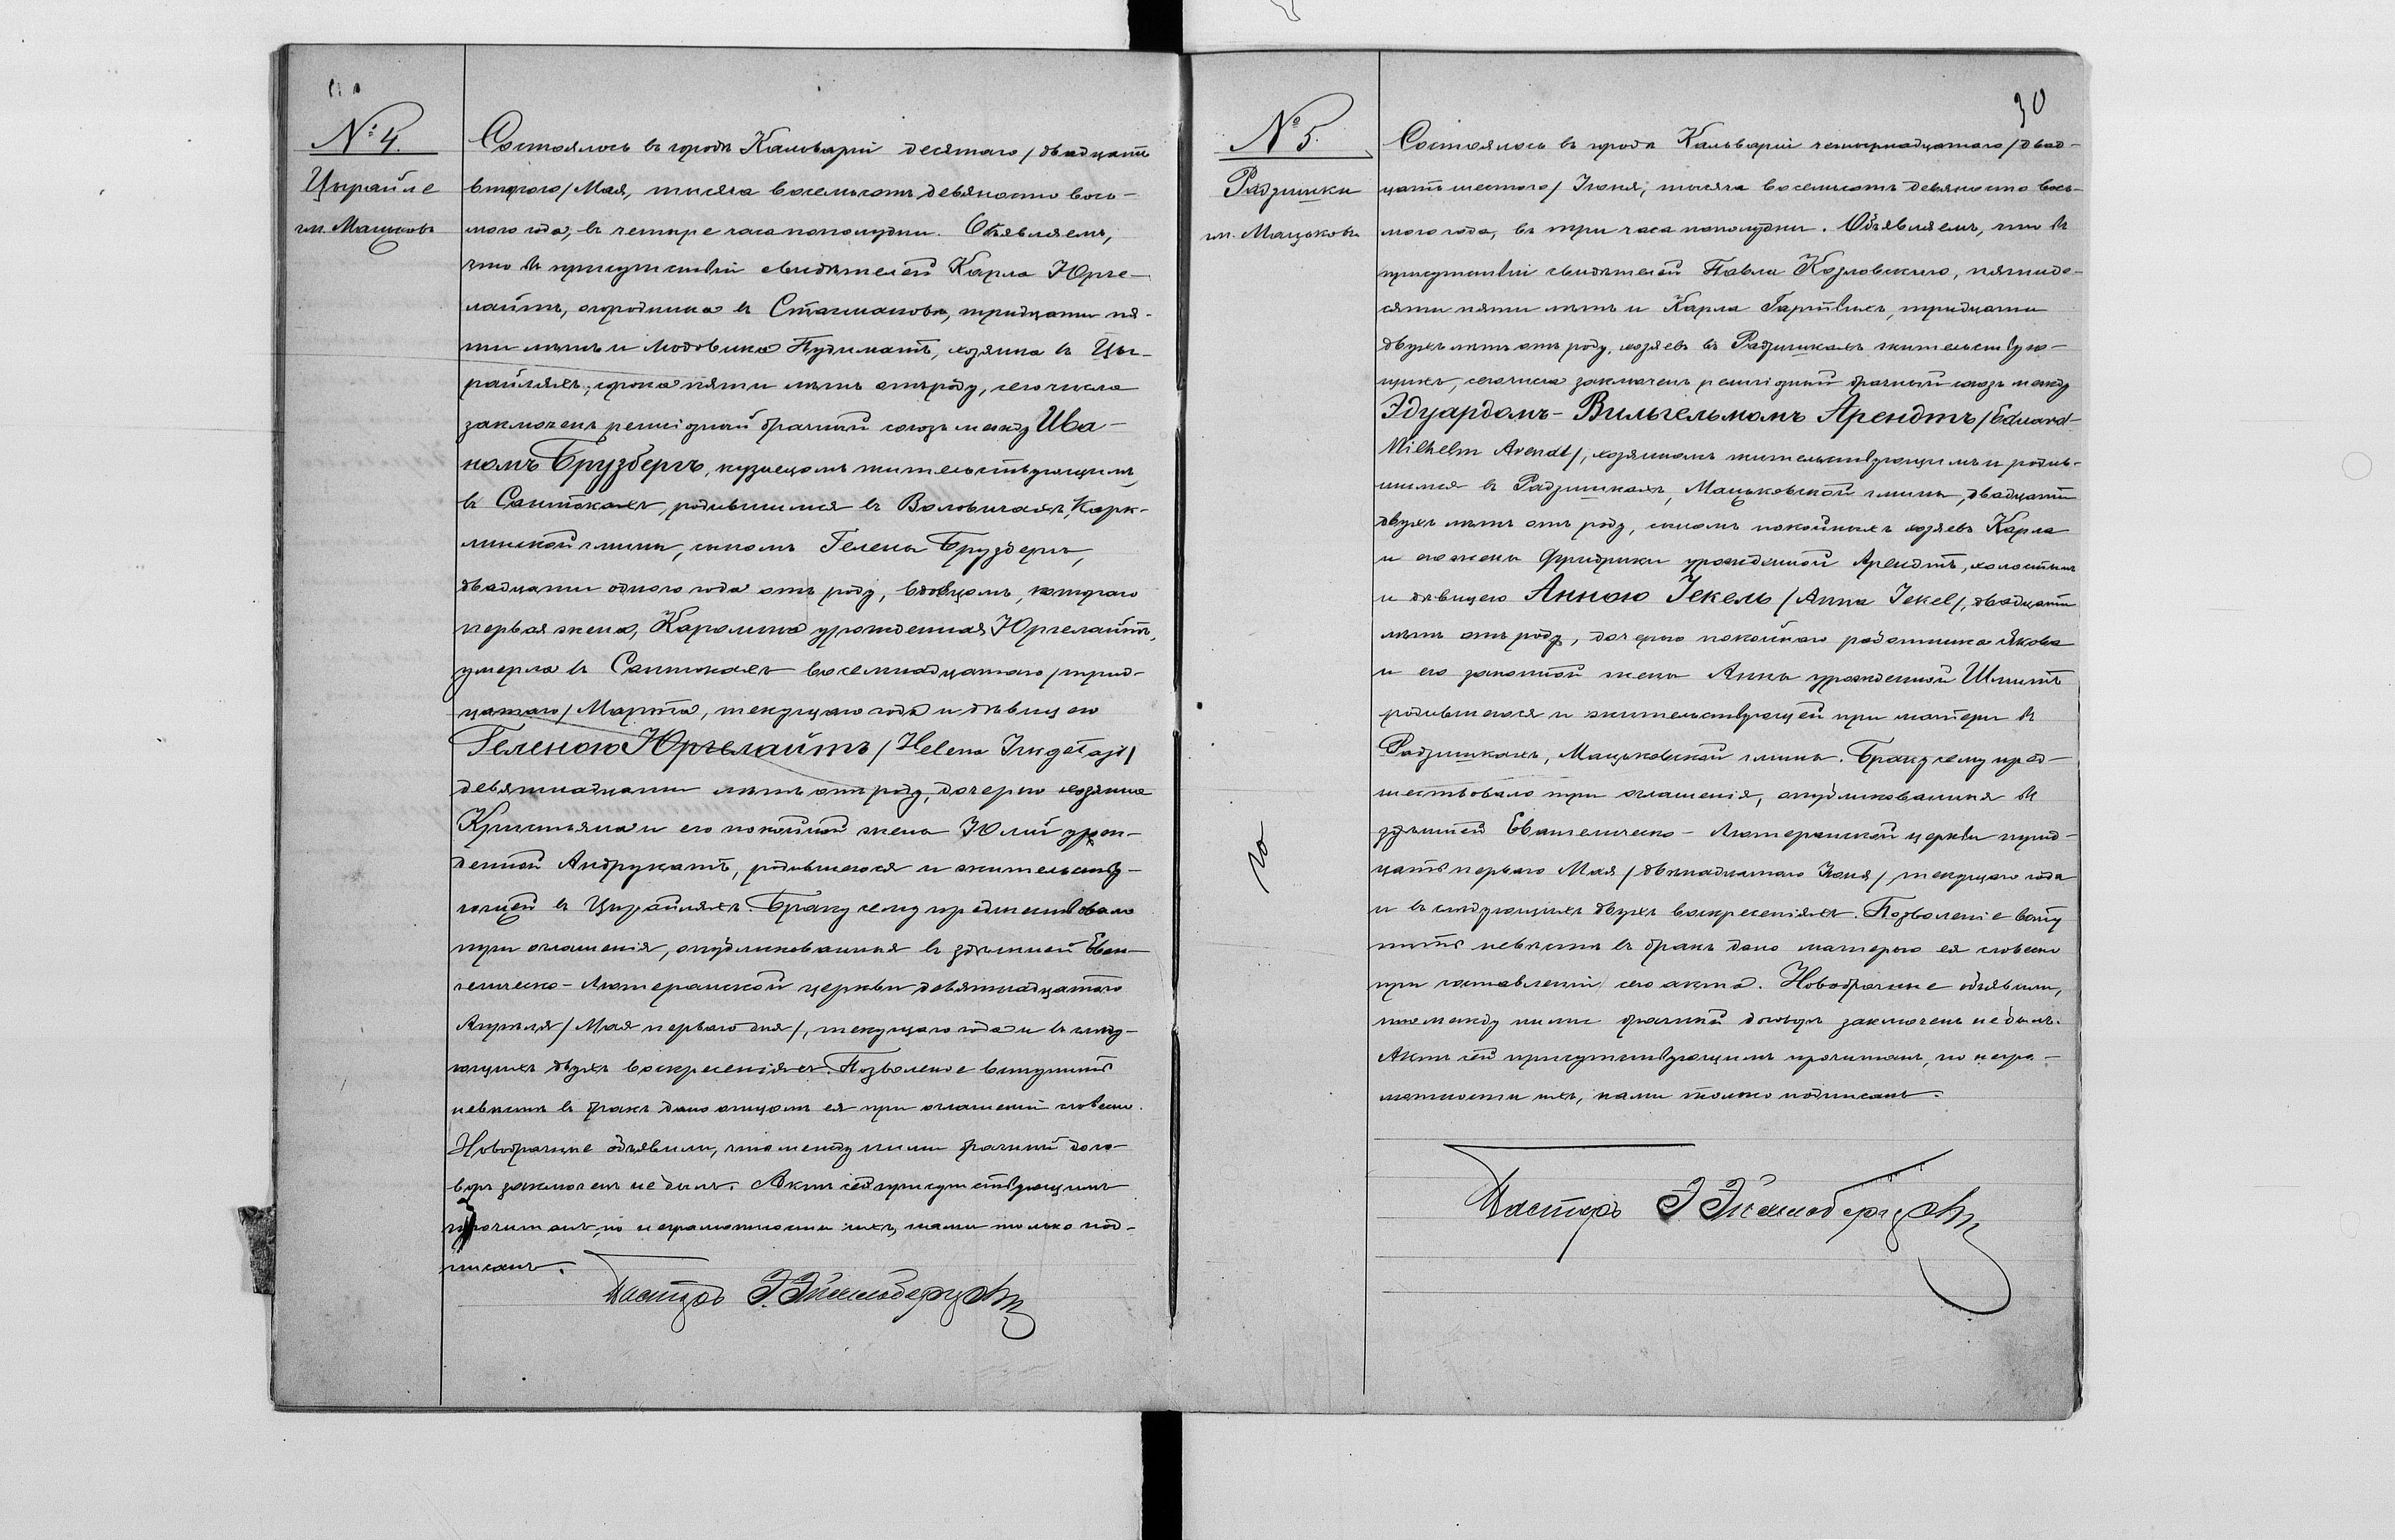 № 4.
Цирайле
гм. Мацковъ
Состоялось въ городѣ Кальваріи десятаго /двадцать
втораго/ Мая, тысяча восемьсотъ девяносто вось-
мого года, въ четыре часа пополудни. Объявляемъ,
что въ присутствіи свидѣтелей Карла Юрге-
лайтъ, огородника въ Стагмановѣ, тридцати пя-
ти лѣтъ и Людовика Пудиматъ, хозяина въ Ци-
райляхъ, сорока пяти лѣтъ отъ роду, сего числа
заключенъ религіозный брачный союзъ между Ива-
номъ Брузбергъ, кузнецомъ жительствующимъ
въ Сантокахъ, родившимся въ Воловичахъ, Карк-
линской гмины, сыномъ Гелены Брузбергъ,
двадцати одного года отъ роду, вдовцомъ, котораго
первая жена, Каролина урожденная Юргелайтъ,
умерла въ Сантокахъ восемнадцатаго /трид-
цатаго/ Марта, текущаго года и дѣвицею
Геленою Юргелайтъ /Helena Jurgelajt/
девятнадцати лѣтъ отъ роду, дочерью хозяина
Кристіяна и его покойной жены Юліи урож-
денной Андрукатъ, родившеюся и жительству-
ющей въ Цирайляхъ. Браку сему предшествовало
три оглашенія, опубликованныя въ здѣшней Еван-
гелическо-Лютеранской церкви девятнадцатаго
Апрѣля /Мая перваго дня/, текущаго года и въ слѣду-
ющихъ двухъ воскресеніяхъ. Позволеніе вступить
невѣстѣ въ бракъ дано отцомъ ея при оглашеніи словесно.
Новобрачные объявили, что между ними брачный дого-
воръ заключенъ не былъ. Актъ сей присутствующимъ
прочитанъ, по неграмотности ихъ, нами только под-
писанъ.
Пасторъ Э.
№ 5.
Радзишки
гм. Мацьковъ
30
Состоялось въ городѣ Кальваріи четырнадцатаго /двад-
цать шестого/ Іюня, тысяча восемьсотъ девяносто вось-
мого года, въ три часа пополудни. Объявляемъ, что въ
присутствіи свидѣтелей Павла Козловскаго, пятиде-
сяти пяти лѣтъ и Карла Гартвихъ, тридцати
двухъ лѣтъ отъ роду, хозяевъ въ Радзишкахъ жительствую-
щихъ, сего числа заключенъ религіозный брачный союзъ между
Эдуардомъ-Вильгельмомъ Арендтъ /Eduard-
Wilhelm Arendt/, хозяиномъ жительствующимъ и родив-
шимся въ Радзишкахъ, Мацьковской гмины, двадцати
двухъ лѣтъ отъ роду, сыномъ покойныхъ хозяевъ Карла
и его жены Фридрики урожденной Арендтъ, холостымъ
и дѣвицею Анною Іекель /Anna Jekel/, двадцати
лѣтъ отъ роду, дочерью покойнаго работника Якова
и его законной жены Анны урожденной Шмитъ
родившеюся и жительствующей при матери въ
Радзишкахъ, Мацьковской гмины. Браку сему пред-
шествовало три оглашенія, опубликованныя въ
здѣшней Евангелическо-Лютеранской церкви трид-
цать перваго Мая /двѣнадцатаго Іюня/, текущаго года
и въ слѣдующихъ двухъ воскресеніяхъ. Позволеніе всту-
пить невѣстѣ въ бракъ дано матерью ея словесно
при составленіи сего акта. Новобрачные объявили,
что между ними брачный договоръ заключенъ не былъ.
Актъ сей присутствующимъ прочитанъ, по негра-
мотности ихъ, нами только подписанъ.
Пасторъ Э